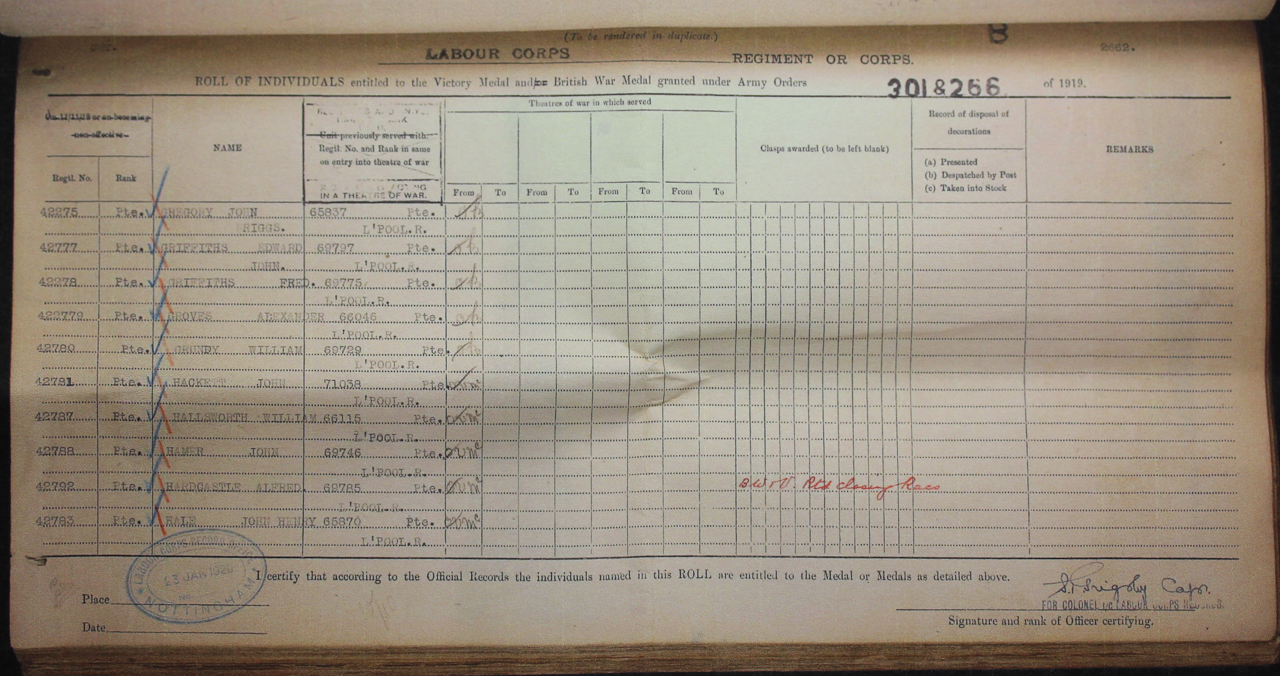 (To be rendered in duplicate.)
B
2662.
LABOUR CORPS REGIMENT OR CORPS.
ROLL OF INDIVIDUALS entitled to the Victory Medal and/or British War Medal granted under Army Orders 301 & 266 of 1919.
On 11/11/18 or on becoming non-effective
Regtl. No. Rank
NAME
Unit previously served with.
Regtl. No. and Rank in same
on entry into theatre of war
IN A THEATRE OF WAR.
Theatres of war in which served
From To From To From To From To
Clasps awarded (to be left blank)
Record of disposal of
decorations
(a) Presented
(b) Despatched by Post
(c) Taken into Stock
REMARKS
42275 Pte. GREGORY JOHN 65837 Pte.
RIGGS. L'POOL.R.
42777 Pte. GRIFFITHS EDWARD 69797
JOHN. L'POOL.R.
42278 Pte. GRIFFITHS FRED. 69775
L'POOL.R.
422779 Pte. GROVES ALEXANDER 66045 Pte.
L'POOL.R.
42780 Pte. GRUNDY WILLIAM 69729 Pte.
L'POOL.R.
42781 Pte. HACKETT JOHN 71038 Pte
L'POOL.R.
42787 Pte. HALLSWORTH WILLIAM 66115 Pte.
L'POOL.R.
42788 Pte. HAMER JOHN 69746 Pte.
L'POOL.R.
42792 Pte. HARDCASTLE ALFRED. 69785 Pte.
B.W & V. Rtd closing Recs
L'POOL.R.
42783 Pte. HALE JOHN HENRY 65870 Pte.
L'POOL.R.
LABOUR CORPS RECORD OFFICE
23 JAN 1920
NOTTINGHAM
I certify that according to the Official Records the individuals named in this ROLL are entitled to the Medal or Medals as detailed above.
Place
Date
Capt.
FOR COLONEL I/C LABOUR CORPS RECORDS.
Signature and rank of Officer certifying.